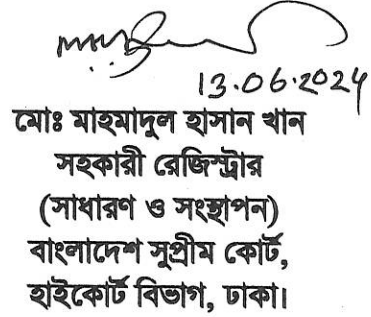 13.06.2024
মোঃ মাহমাদুল হাসান খান
সহকারী রেজিস্ট্রার
(সাধারণ ও সংস্থাপন)
বাংলাদেশ সুপ্রীম কোর্ট,
হাইকোর্ট বিভাগ, ঢাকা।